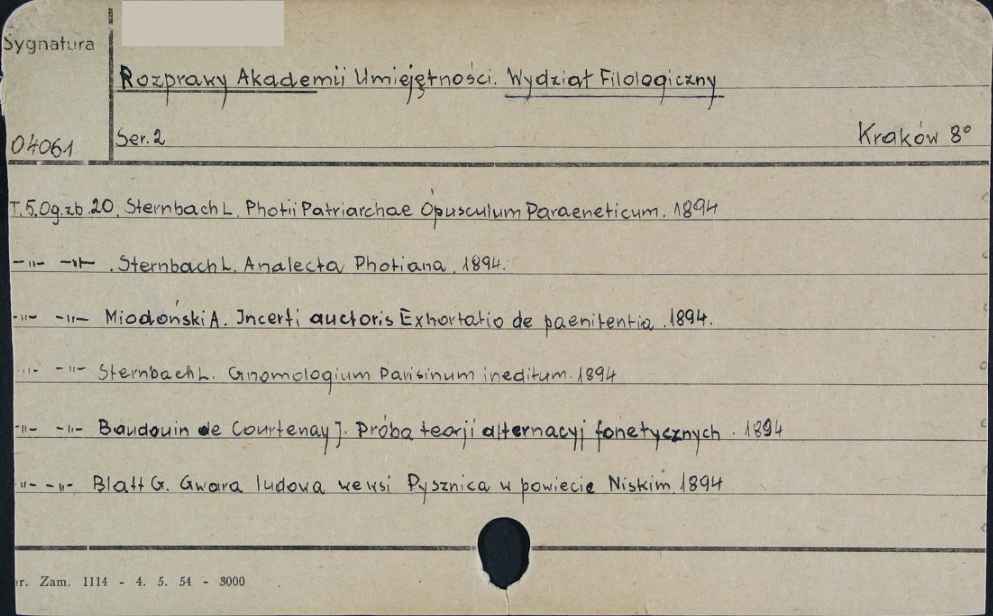 Sygnatura
Rozprawy Akademii Umiejętności. Wydział Filologiczny
04061 Ser. 2 Kraków 8°
T. 5. Og. zb. 20. Sternbach L. Photii Patriarchae Opusculum Paraeneticum. 1894
-"- -"- . Sternbach L. Analecta Photiana . 1894.
-"- -"- Miodoński A. Incerti auctoris Exhortatio de paenitentia . 1894.
-"- -"- Sternbach L. Gnomologium Parisinum ineditum. 1894
-"- -"- Baudouin de Courtenay J. Próba teorji alternacyj fonetycznych . 1894
-"- -"- Blatt G. Gwara ludowa we wsi Pysznica w powiecie Niskim. 1894
r. Zam. 1114 - 4. 5. 54 - 3000